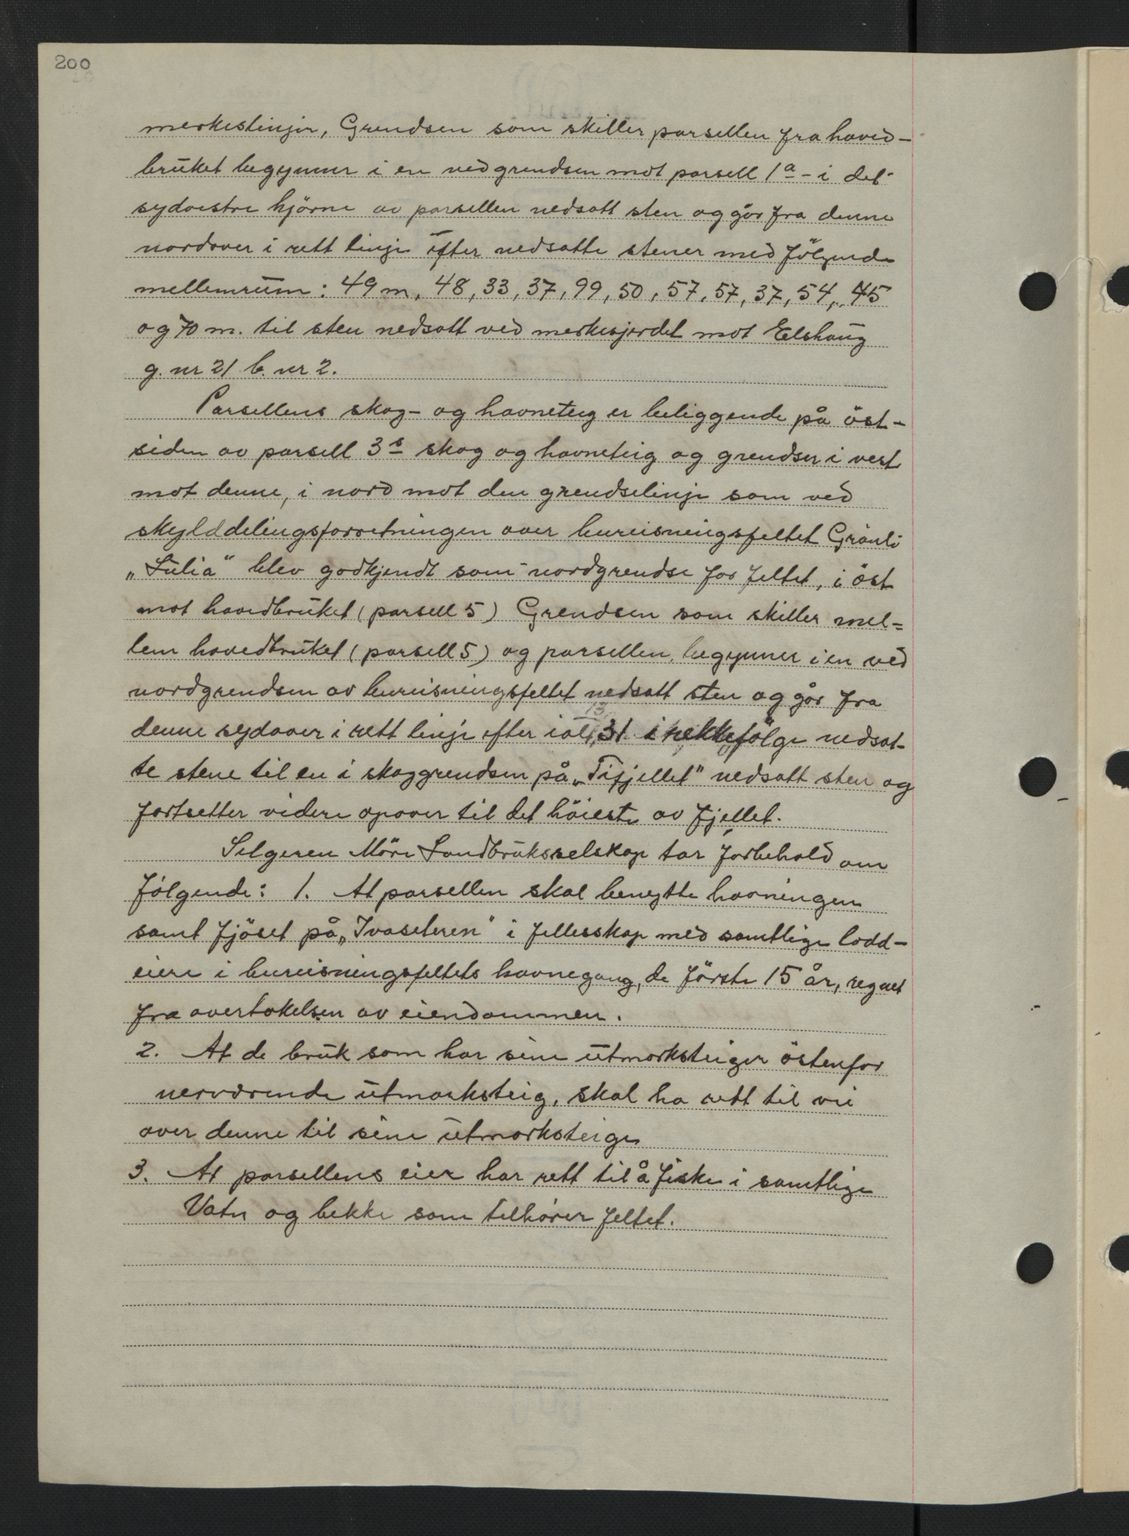 200
merkeslinjer, Grendsen som skiller parsellen fra hoved-
bruket begynner i en ved grendsen mot parsell 1a - i det
sydvestre hjörne av parsellen nedsatt sten og går fra denne
nordover i rett linje efter nedsatte stener med fölgende
mellemrum: 49 m, 48, 33, 37, 99, 50, 57, 57, 37, 54, 45
og 70 m. til sten nedsatt ved merkesjerdet mot Elshaug
g. nr 21 b. nr 2.
Parsellens skog- og havneteig er beliggende på öst-
siden av parsell 3s skog og havneteig og grendser i vest
mot denne, i nord mot den grendselinje som ved
skylddelingsforretningen over bureisningsfeltet Grönli
„Sulia" blev godkjendt som nordgrendse for feltet, i öst
mot hovedbruket (parsell 5) Grendsen som skiller mel=
lem hovedbruket (parsell 5) og parsellen, begynner i en ved
nordgrendsen av bureisningsfeltet nedsatt sten og går fra
denne sydover i rett linje efter ialt 13 i rekkefölge nedsat-
te stene til en i skoggrendsen på „Tifjellet" nedsatt sten og
fortsetter videre opover til det höieste av fjellet.
Selgeren Möre Landbruksselskap tar forbehold om
fölgende: 1. At parsellen skal benytte havningen
samt fjöset på „Ivaseteren" i fellesskap med samtlige lodd-
eiere i bureisningsfeltets havnegang, de förste 15 år, regnet
fra overtakelsen av eiendommen.
2. At de bruk som har sine utmarksteiger östenfor
nerværende utmarksteig, skal ha rett til vei
over denne til sine utmarksteige
3. At parsellens eier har rett til å fiske i samtlige
Vatn og bekke som tilhörer feltet.